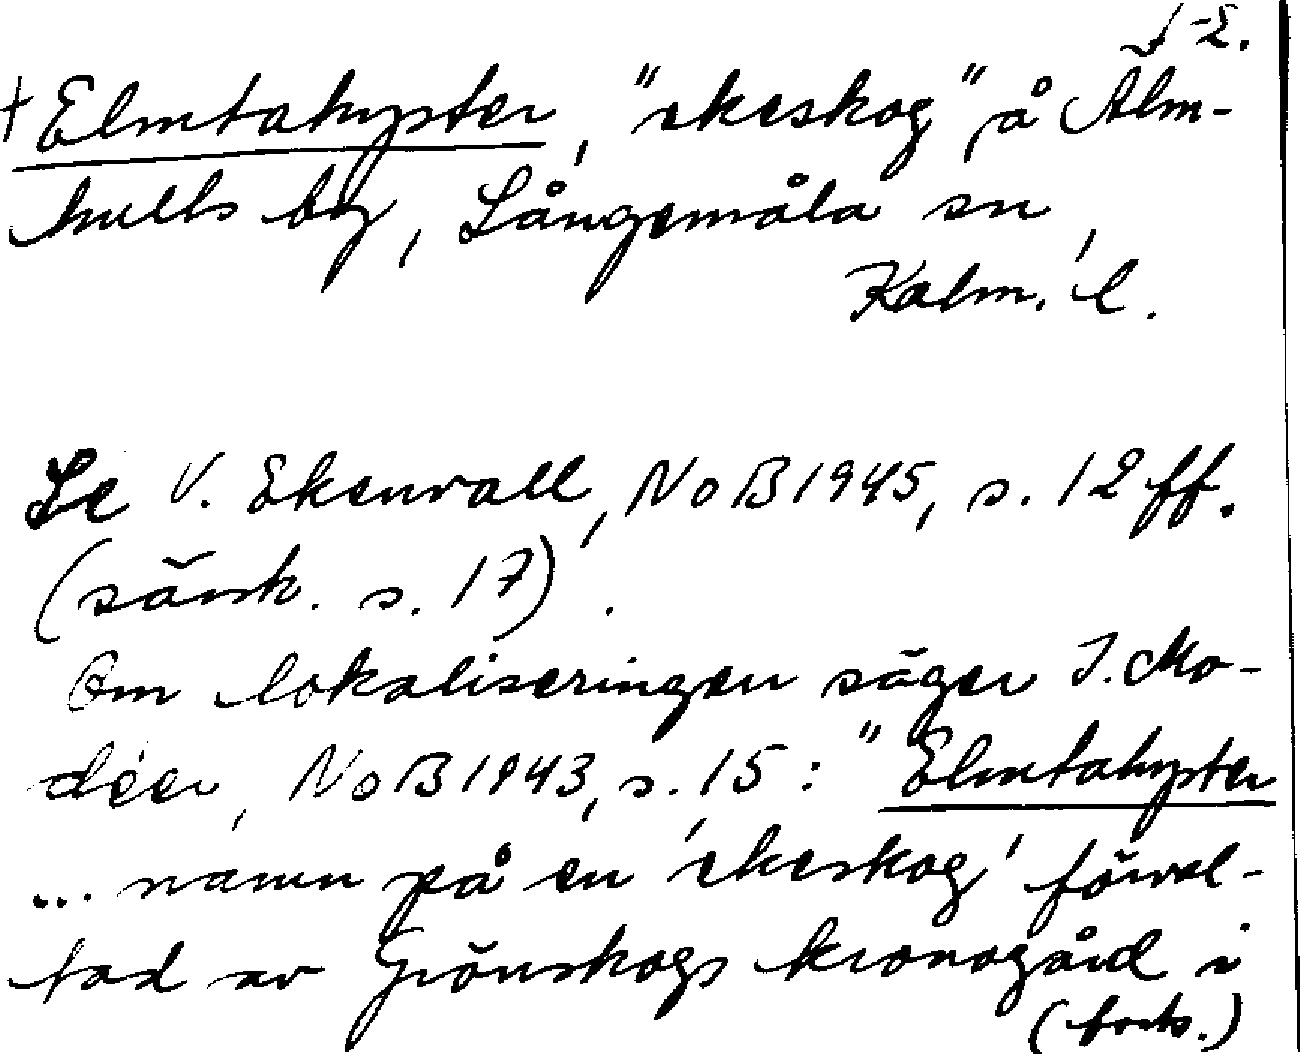 1-2.
† Elmtahyster, "ekeskog" å Älm-
hults by, Långemåla sn,
Kalm. l.
Se V. Ekenvall, NoB 1945, s. 12 ff.
(särsk. s. 17).
Om lokaliseringen säger I. Mo-
déer, NoB 1943, s. 15: "Elmtahyster
... namn på en 'ekeskog' förval-
tad av Grönskogs kronogård i
(forts.)